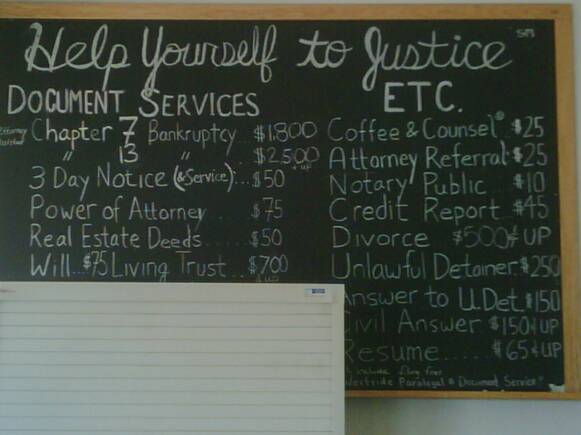 Help Yourself to Justice SM
DOCUMENT SERVICES
Attorney Assisted
Chapter 7 Bankruptcy $1,800
" 13 " $2,500 & up
3 Day Notice (& Service)... $50
Power of Attorney ... $75
Real Estate Deeds ...... $50
Will... $75 Living Trust ... $700 & up
ETC.
Coffee & Counsel® $25
Attorney Referral $25
Notary Public ... $10
Credit Report .... $45
Divorce $500 & UP
Unlawful Detainer $250
Answer to U.Det. $150
Civil Answer $150 & UP
Resume ..... $65 & UP
include filing fees
Westside Paralegal & Document Service